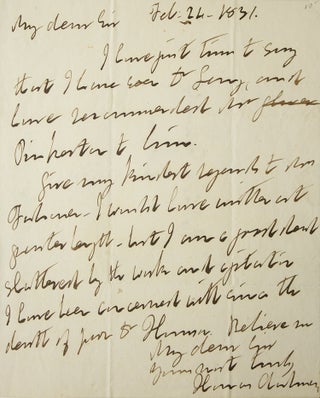 My dear Sir Feb. 24. 1831.
I have just time to say
that I have seen Dr Gerry, and
have recommended Mr
Pinkerton to him.
Give my kindest regards to Mrs
I would have written at
greater length - but I am a good deal
shattered by the work and agitation
I have been concerned with since the
death of poor Dr
Believe me
My dear Sir
Yours most truly
Thomas Chalmers